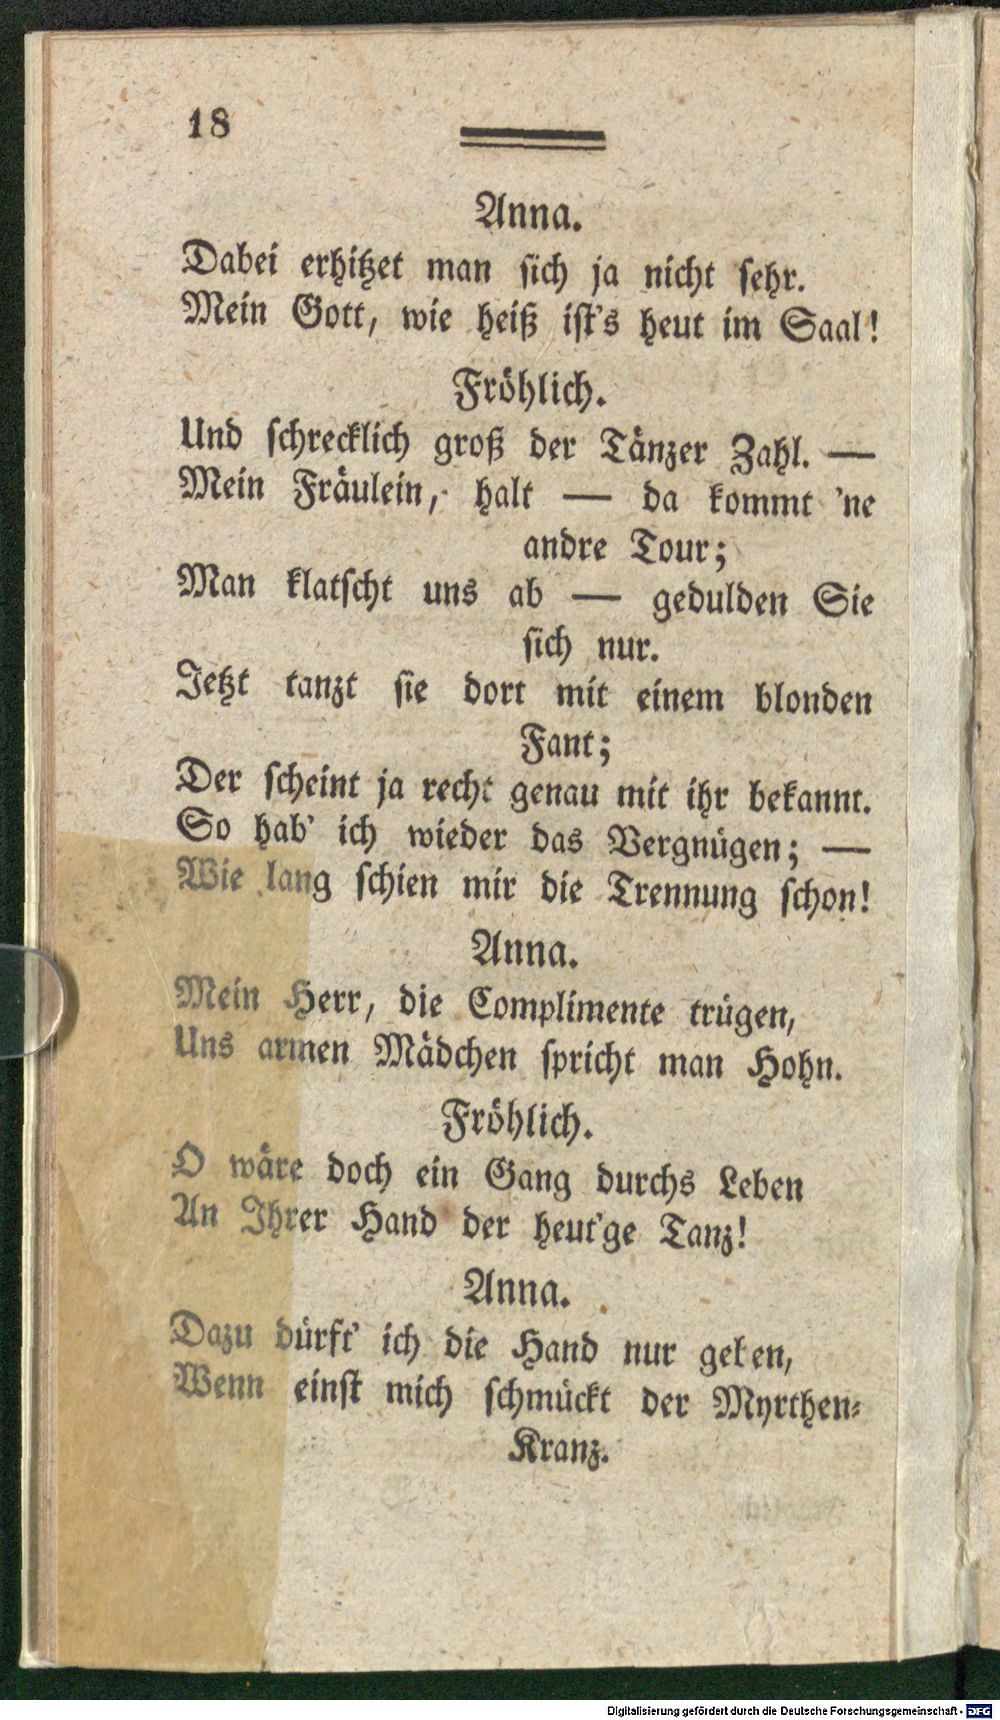 18
Anna.
Dabei erhitzet man sich ja nicht sehr.
Mein Gott, wie heiß ist's heut im Saal!
Fröhlich.
Und schrecklich groß der Tänzer Zahl. —
Mein Fräulein, halt — da kommt 'ne
andre Tour;
Man klatscht uns ab — gedulden Sie
sich nur.
Jetzt tanzt sie dort mit einem blonden
Fant;
Der scheint ja recht genau mit ihr bekannt.
So hab' ich wieder das Vergnügen; —
Wie lang schien mir die Trennung schon!
Anna.
Mein Herr, die Complimente trügen,
Uns armen Mädchen spricht man Hohn.
Fröhlich.
O wäre doch ein Gang durchs Leben
An Ihrer Hand der heut'ge Tanz!
Anna.
Dazu dürft' ich die Hand nur geben,
Wenn einst mich schmückt der Myrthen-
Kranz.
Digitalisierung gefördert durch die Deutsche Forschungsgemeinschaft - DFG